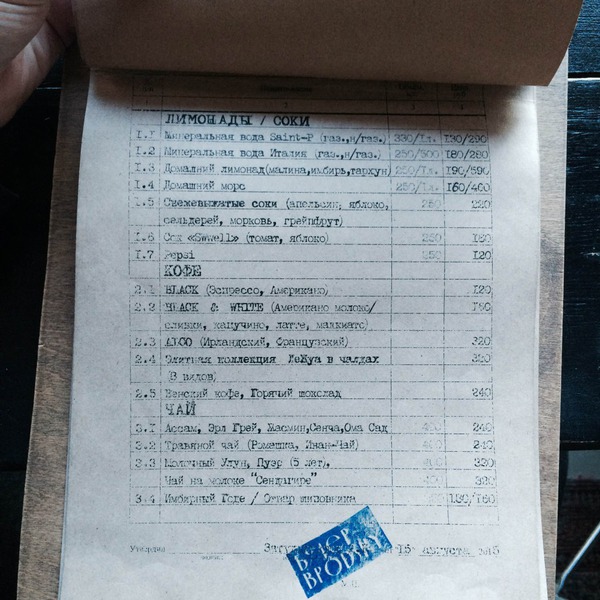 ЛИМОНАДЫ / СОКИ
I.I Минеральная вода Saint-P (газ.,н/газ.) 330/Iл. I30/290
I.2 Минеральная вода Италия (газ.,н/газ.) 250/500 I80/280
I.3 Домашний лимонад(малина,имбирь,тархун) 250/Iл. I90/590
I.4 Домашний морс 250/Iл. I60/400
I.5 Свежевыжатые соки (апельсин, яблоко, 250 220
сельдерей, морковь, грейпфрут)
I.6 Сок «Swell» (томат, яблоко) 250 I80
I.7 Pepsi 250 I20
КОФЕ
2.I BLACK (Эспрессо, Американо) I20
2.2 BLACK & WHITE (Американо молоко/ I60
сливки, капучино, латте, маккиато)
2.3 ALCO (Ирландский, Французский) 320
2.4 Элитная коллекция в чалдах 320
(3 видов)
2.5 Венский кофе, Горячий шоколад 240
ЧАЙ
3.I Ассам, Эрл Грей, Жасмин,Сенча,Ома Сад 400 240
3.2 Травяной чай (Ромашка, Иван-Чай) 400 240
3.3 Молочный Улун, Пуэр (5 лет), 400 320
Чай на молоке "Сендагире" 400 320
3.4 Имбирный Годе / Отвар шиповника I80/I60
Утвердил I5 августа
БЭЙСР BРОDSKY